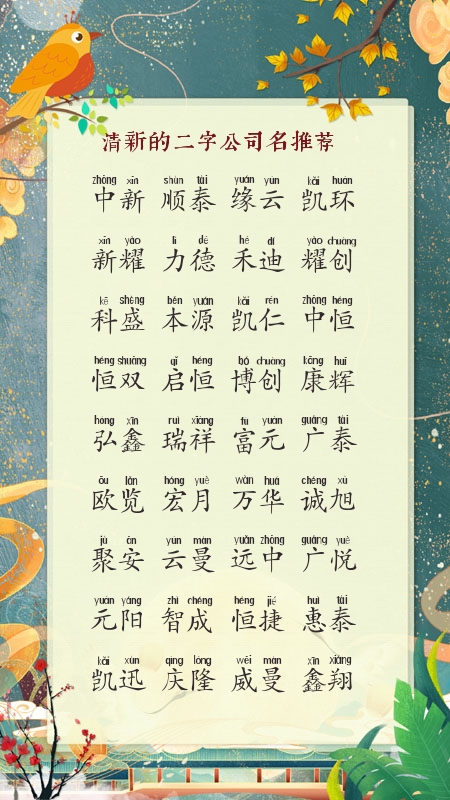 清新的二字公司名推荐
zhōng xīn shùn tài yuán yún kǎi huán
中新 顺泰 缘云 凯环
xīn yào lì dé hé dí yào chuàng
新耀 力德 禾迪 耀创
kē shèng běn yuán kǎi rén zhōng héng
科盛 本源 凯仁 中恒
héng shuāng qǐ héng bó chuàng kāng huī
恒双 启恒 博创 康辉
hóng xīn ruì xiáng fù yuán guǎng tài
弘鑫 瑞祥 富元 广泰
ōu lǎn hóng yuè wàn huá chéng xù
欧览 宏月 万华 诚旭
jù ān yún màn yuǎn zhōng guǎng yuè
聚安 云曼 远中 广悦
yuán yáng zhì chéng héng jié huì tài
元阳 智成 恒捷 惠泰
kǎi xùn qìng lóng wēi màn xīn xiáng
凯迅 庆隆 威曼 鑫翔